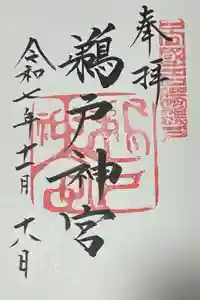 奉拝
鵜戸神宮
令和七年十一月十八日